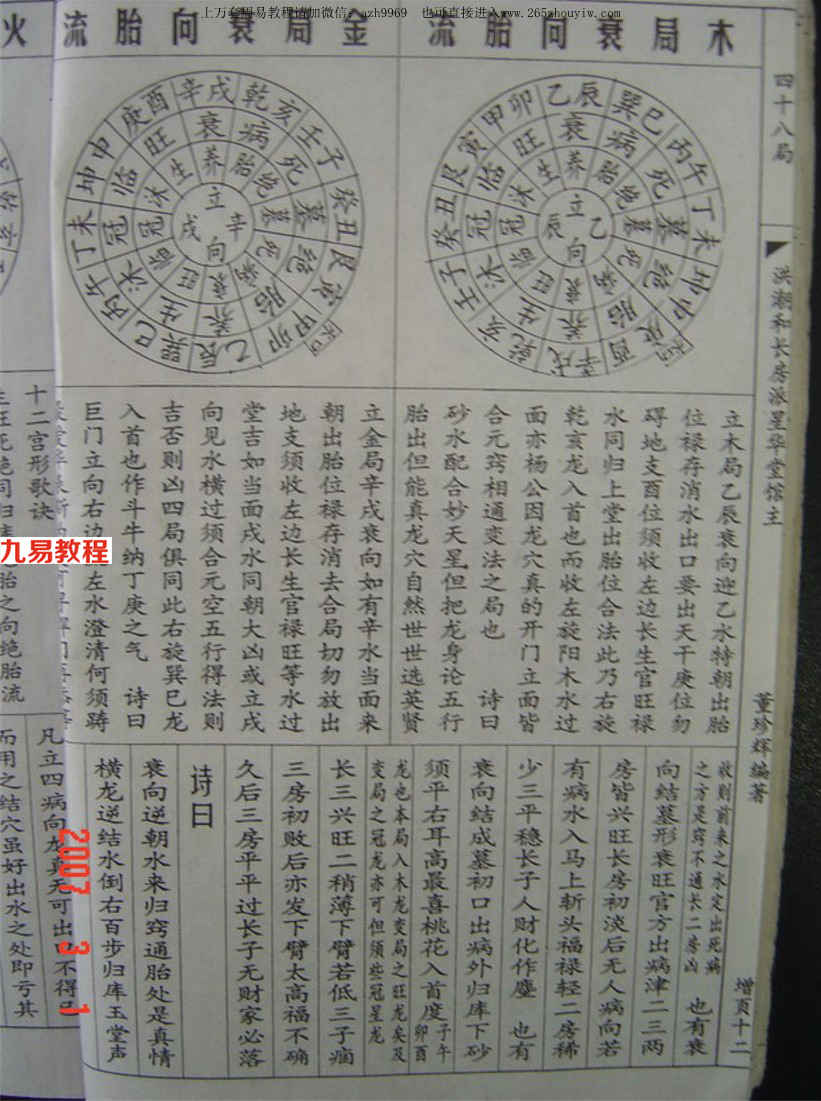 上万套周易教程请加微信:
也可直接进入www.265zhouyiw.com
四十八局
洪潮和长房派星华堂馆主
董珍辉编著
增页十二
木局衰向胎流
乙辰
巽巳
丙午
丁未
坤申
庚酉
辛戌
乾亥
壬子
癸丑
艮寅
甲卯
衰病死墓绝胎养生沐冠临旺
养胎绝墓死病衰旺临冠沐生
立向
乙辰
立木局乙辰衰向迎乙水特朝出胎
位禄存消水出口要出天干庚位勿
碍地支酉位须收左边长生官旺禄
水同归上堂出胎位合法此乃右旋
乾亥龙入首也而收左旋阳木水过
面亦杨公因龙穴真的开门立面皆
合元窍相通变法之局也 诗曰
砂水配合妙天星但把龙身论五行
胎出但能真龙穴自然世世选英贤
金局衰向胎流
辛戌
乾亥
壬子
癸丑
艮寅
甲卯
乙辰
巽巳
丙午
丁未
坤申
庚酉
衰病死墓绝胎养生沐冠临旺
养胎绝墓死病衰旺临冠沐生
立向
辛戌
立金局辛戌衰向如有辛水当面来
朝出胎位禄存消去合局切勿放出
地支须收左边长生官禄旺等水过
堂吉如当面戌水同朝大凶或立戌
向见水横过须合元空五行得法则
吉否则凶四局俱同此右旋巽巳龙
入首也作斗牛纳丁庚之气 诗曰
巨门立向右边 左水澄清何须踌
收则前来之水定出死病
之方是窍不通长二房凶 也有衰
向结墓形衰旺官方出病津二三两
房皆兴旺长房初淡后无人病向若
有病水入马上斩头福禄轻二房稀
少三平稳长子人财化作尘 也有
衰向结成墓初口出病外归库下砂
须平右耳高最喜桃花入首度子午卯酉
龙也本局入木龙变局之旺龙矣及
变局之冠龙亦可但须些冠星龙
长三兴旺二稍薄下臂若低三子痼
三房初败后亦发下臂太高福不确
久后三房平平过长子无财家必落
诗曰
衰向逆朝水来归窍通胎处是真情
横龙逆结水倒右百步归库玉堂声
火
十二宫形歌诀
胎之向绝胎流
凡立四病向龙真无可出口不得已
而用之结穴虽好出水之处即亏其
九易教程
2007 3 1